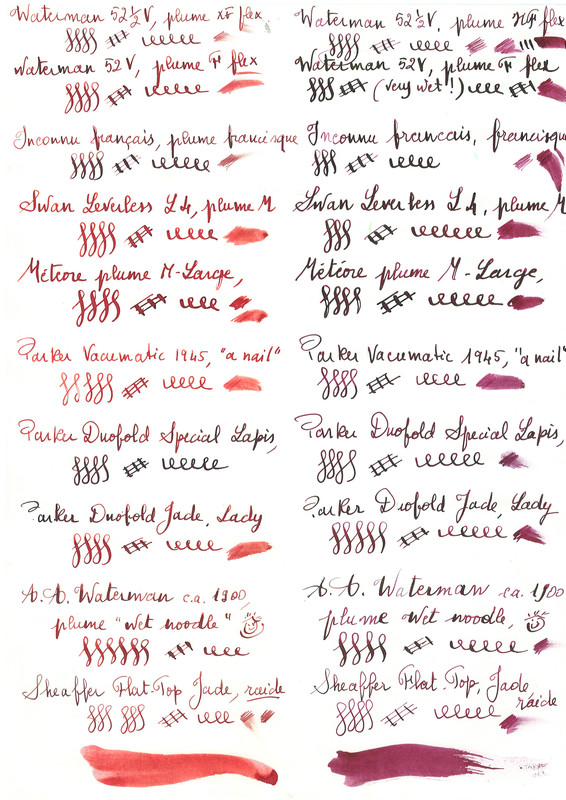 Waterman 52½V, plume XF flex
Waterman 52V, plume F flex
Inconnu français, plume francisque
Swan Leverless L4, plume M
Météore plume M-Large,
Parker Vacumatic 1945, "a nail"
Parker Duofold Special Lapis,
Parker Duofold Jade, Lady
A.A. Waterman ca. 1900,
plume "wet noodle"
Sheaffer Flat-Top Jade, raide
Waterman 52½V, plume XF flex
Waterman 52V, plume F flex
(very wet!!)
Inconnu francais, francisque
Swan Leverless L4, plume M
Météore plume M-Large,
Parker Vacumatic 1945, "a nail"
Parker Duofold Special Lapis,
Parker Duofold Jade, Lady
A.A. Waterman ca. 1900
plume wet noodle,
Sheaffer Flat-Top, Jade,
raide